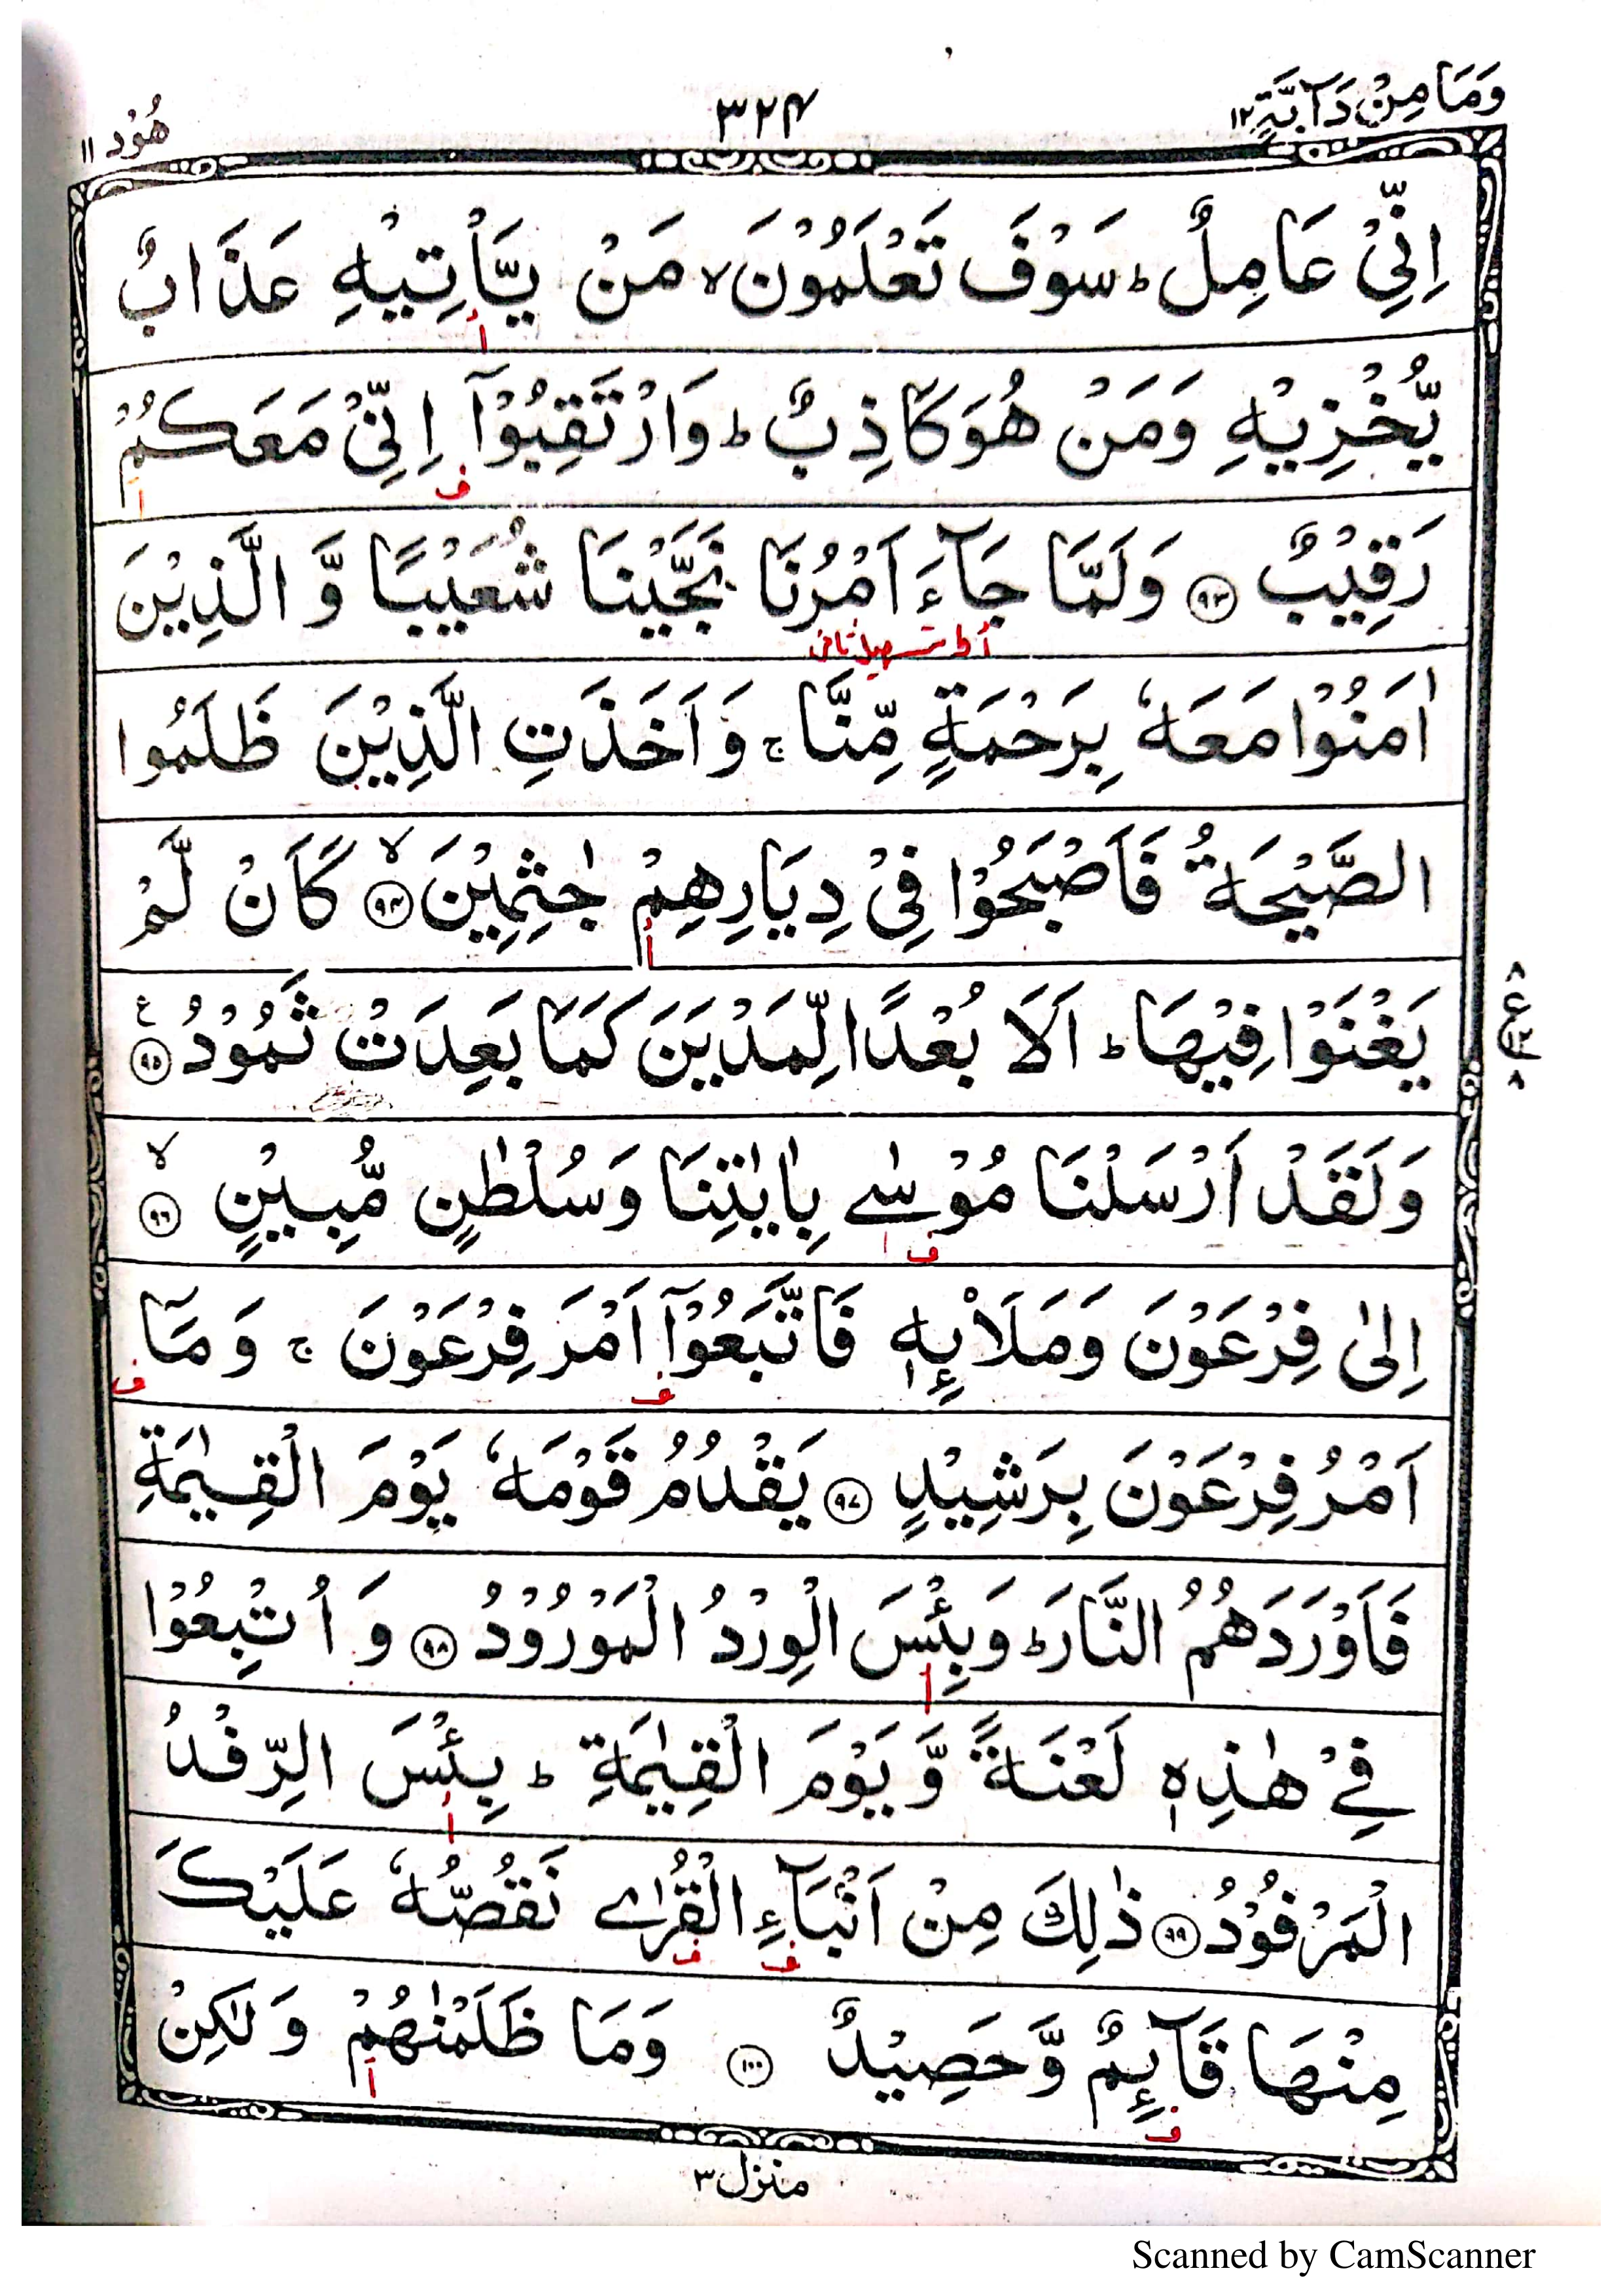 وَمَا مِنْ دَآبَّةٍ ١٢
٣٢٤
هُوْد ١١
اِنِّیْ عَامِلٌ ؕ سَوْفَ تَعْلَمُوْنَ ۙ مَنْ یَّاْتِیْهِ عَذَابٌ
أ
یُّخْزِیْهِ وَمَنْ هُوَ كَاذِبٌ ؕ وَارْتَقِبُوْۤا اِنِّیْ مَعَكُمْ
ف ا
رَقِیْبٌ ﴿٩٣﴾ وَلَمَّا جَآءَ اَمْرُنَا نَجَّیْنَا شُعَیْبًا وَّ الَّذِیْنَ
اٰمَنُوْا مَعَهٗ بِرَحْمَةٍ مِّنَّا ۚ وَاَخَذَتِ الَّذِیْنَ ظَلَمُوا
الصَّیْحَةُ فَاَصْبَحُوْا فِیْ دِیَارِهِمْ جٰثِمِیْنَ ﴿٩٤﴾ ۙ كَاَنْ لَّمْ
أ
یَغْنَوْا فِیْهَا ؕ اَلَا بُعْدًا لِّمَدْیَنَ كَمَا بَعِدَتْ ثَمُوْدُ ﴿٩٥﴾ ع
٨ ع ٨
وَلَقَدْ اَرْسَلْنَا مُوْسٰے بِاٰیٰتِنَا وَسُلْطٰنٍ مُّبِیْنٍ ﴿٩٦﴾ ۙ
ف ا
اِلٰی فِرْعَوْنَ وَمَلَا۠ئِهٖ فَاتَّبَعُوْۤا اَمْرَ فِرْعَوْنَ ۚ وَ مَاۤ
ف ف
اَمْرُ فِرْعَوْنَ بِرَشِیْدٍ ﴿٩٧﴾ یَقْدُمُ قَوْمَهٗ یَوْمَ الْقِیٰمَةِ
فَاَوْرَدَهُمُ النَّارَ ؕ وَبِئْسَ الْوِرْدُ الْمَوْرُوْدُ ﴿٩٨﴾ وَ اُتْبِعُوْا
أ
فِیْ هٰذِهٖ لَعْنَةً وَّ یَوْمَ الْقِیٰمَةِ ؕ بِئْسَ الرِّفْدُ
أ
الْمَرْفُوْدُ ﴿٩٩﴾ ذٰلِكَ مِنْ اَنْۢبَآءِ الْقُرٰے نَقُصُّهٗ عَلَیْكَ
ف ف
مِنْهَا قَآئِمٌ وَّحَصِیْدٌ ﴿١٠٠﴾ وَمَا ظَلَمْنٰهُمْ وَلٰكِنْ
ف أ
منزل ٣
Scanned by CamScanner